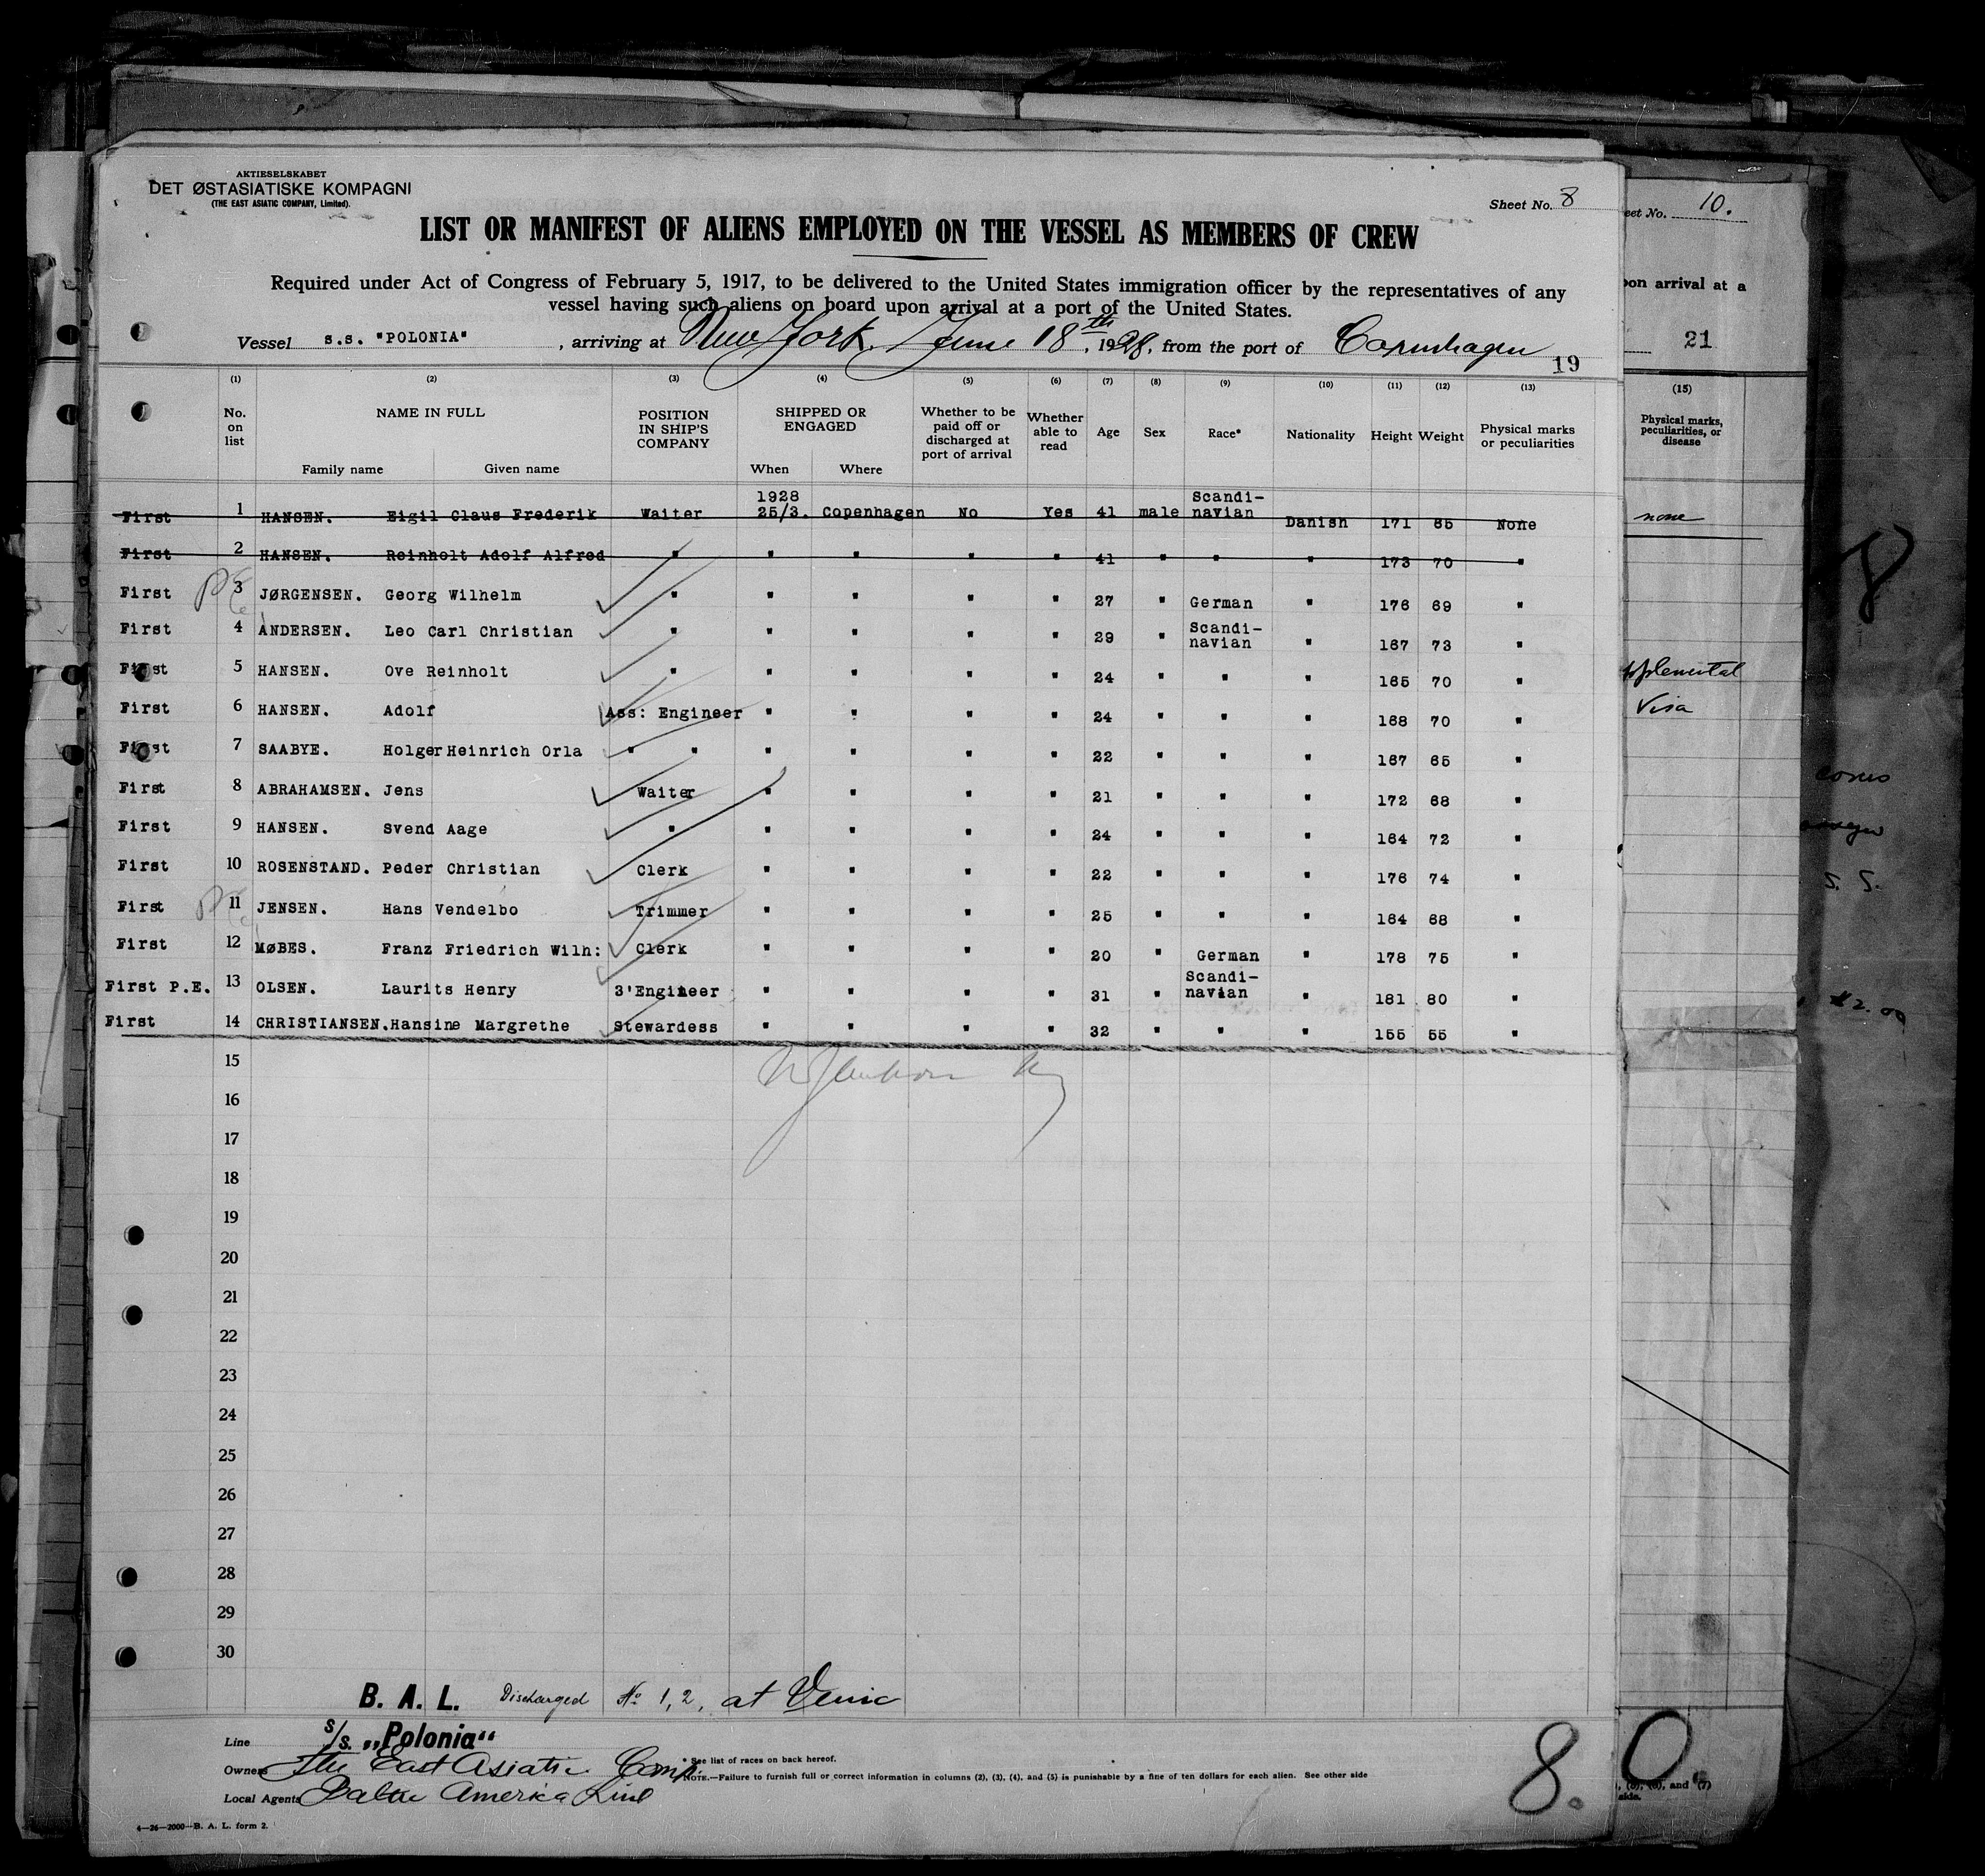 AKTIESELSKABET
DET ØSTASIATISKE KOMPAGNI
(THE EAST ASIATIC COMPANY, Limited).
Sheet No. 8
LIST OR MANIFEST OF ALIENS EMPLOYED ON THE VESSEL AS MEMBERS OF CREW
Required under Act of Congress of February 5, 1917, to be delivered to the United States immigration officer by the representatives of any
vessel having such aliens on board upon arrival at a port of the United States.
Vessel s.s. "POLONIA", arriving at New York, June 18th, 1928, from the port of Copenhagen
19
(1) (2) (3) (4) (5) (6) (7) (8) (9) (10) (11) (12) (13)
No. on list NAME IN FULL Family name Given name POSITION IN SHIP'S COMPANY SHIPPED OR ENGAGED When Where Whether to be paid off or discharged at port of arrival Whether able to read Age Sex Race* Nationality Height Weight Physical marks or peculiarities
First 1 HANSEN. Eigil Claus Frederik Waiter 1928 25/3. Copenhagen No Yes 41 male Scandi-navian Danish 171 65 None
First 2 HANSEN. Reinholt Adolf Alfred " " " " " 41 " " " 173 70 "
First 3 JØRGENSEN. Georg Wilhelm " " " " " 27 " German " 176 69 "
First 4 ANDERSEN. Leo Carl Christian " " " " " 29 " Scandi-navian " 167 73 "
First 5 HANSEN. Ove Reinholt " " " " " 24 " " " 165 70 "
First 6 HANSEN. Adolf Ass: Engineer " " " " 24 " " " 168 70 "
First 7 SAABYE. Holger Heinrich Orla " " " " " " 22 " " " 167 65 "
First 8 ABRAHAMSEN. Jens Waiter " " " " 21 " " " 172 68 "
First 9 HANSEN. Svend Aage " " " " " 24 " " " 164 72 "
First 10 ROSENSTAND. Peder Christian Clerk " " " " 22 " " " 176 74 "
First 11 JENSEN. Hans Vendelbo Trimmer " " " " 25 " " " 164 68 "
First 12 MØBES. Franz Friedrich Wilh: Clerk " " " " 20 " German " 178 75 "
First P.E. 13 OLSEN. Laurits Henry 3'Engineer " " " " 31 " Scandi-navian " 181 80 "
First 14 CHRISTIANSEN. Hansine Margrethe Stewardess " " " " 32 " " " 155 55 "
15
16
17
18
19
20
21
22
23
24
25
26
27
28
29
30
B. A. L. Discharged No 1, 2, at
Line s/s. „Polonia"
Owners The East Asiatic Comp.
Local Agents Baltic America Line
* See list of races on back hereof.
NOTE.—Failure to furnish full or correct information in columns (2), (3), (4), and (5) is punishable by a fine of ten dollars for each alien. See other side
4—26—2000—B. A. L. form 2.
8.
eet No. 10.
pon arrival at a
21
(15)
Physical marks,
peculiarities, or
disease
none
Visa
8
S. S.
$2.00
0
, (5), (6), and (7)
side.